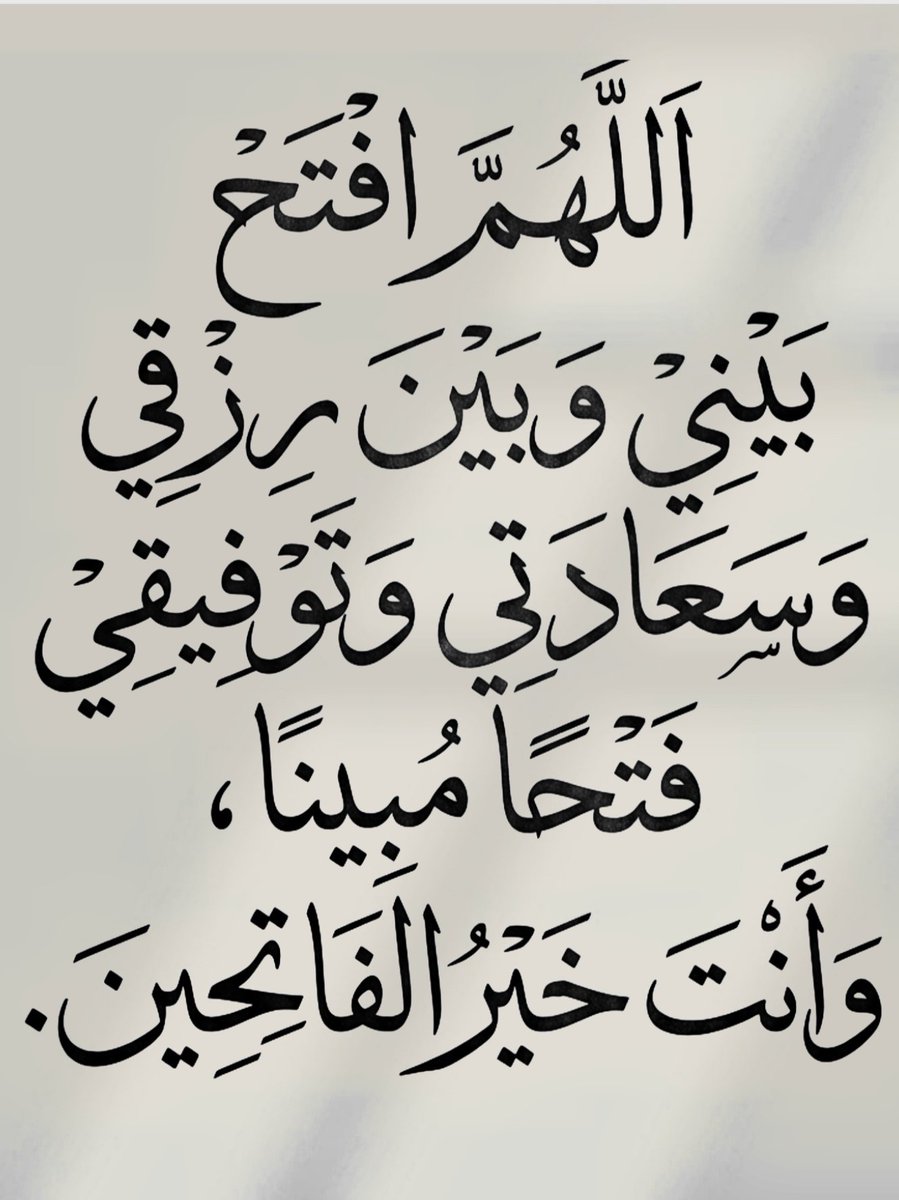 اَللَّهُمَّ افْتَحْ
بَيْنِيْ وَبَيْنَ رِزْقِي
وَسَعَادَتِي وَتَوْفِيقِيْ
فَتْحًا مُبِينًا،
وَأَنْتَ خَيْرُ الفَاتِحِينَ.